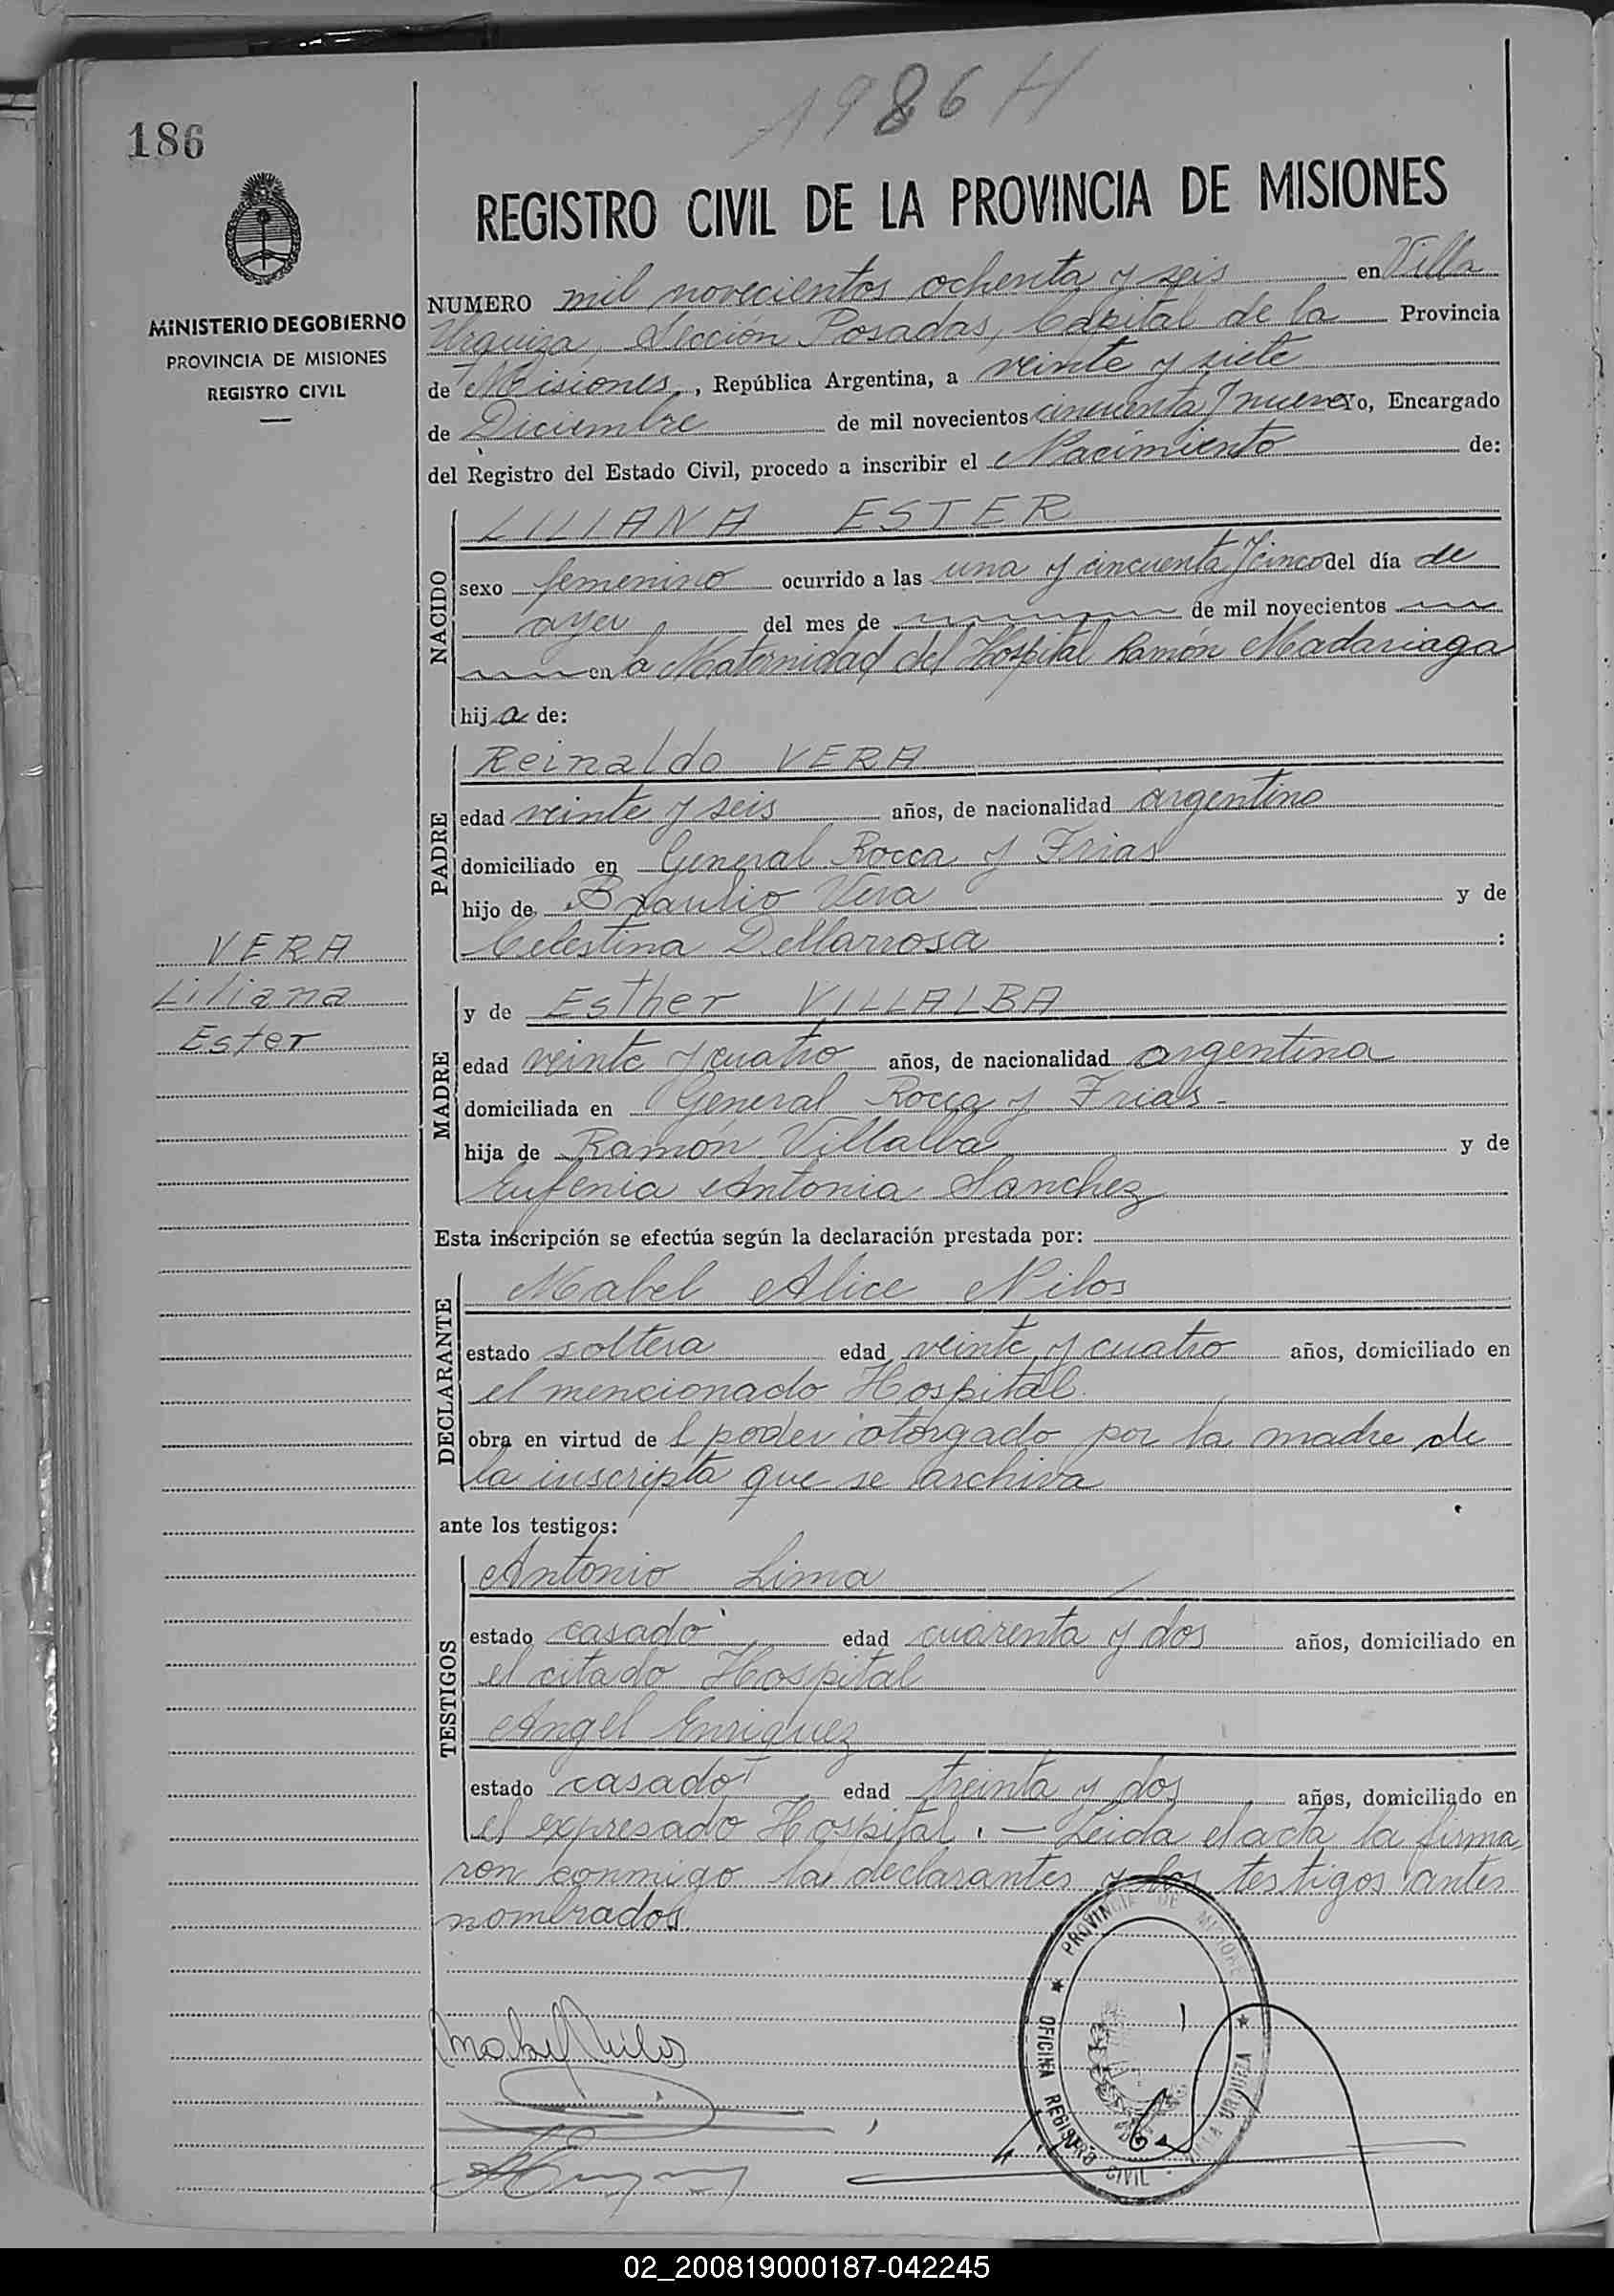 1986 H
186
REGISTRO CIVIL DE LA PROVINCIA DE MISIONES
MINISTERIO DE GOBIERNO
PROVINCIA DE MISIONES
REGISTRO CIVIL
NUMERO mil novecientos ochenta y seis en Villa
Urquiza, Sección Posadas, Capital de la Provincia
de Misiones, República Argentina, a veinte y siete
de Diciembre de mil novecientos cincuenta y nueve Yo, Encargado
del Registro del Estado Civil, procedo a inscribir el Nacimiento de:
NACIDO
LILIANA ESTER
sexo femenino ocurrido a las una y cincuenta y cinco del día de
ayer del mes de de mil novecientos
en la Maternidad del Hospital Ramón Madariaga
hija de:
PADRE
Reinaldo VERA
edad veinte y seis años, de nacionalidad argentino
domiciliado en General Rocca y Frias
hijo de Braulio Vera y de
Celestina Dellarrosa :
VERA
Liliana
Ester
MADRE
y de Esther VILLALBA
edad veinte y cuatro años, de nacionalidad argentina
domiciliada en General Rocca y Frias.-
hija de Ramón Villalba y de
Eufenia Antonia Sanchez
Esta inscripción se efectúa según la declaración prestada por:
DECLARANTE
Mabel Alice Nilos
estado soltera edad veinte y cuatro años, domiciliado en
el mencionado Hospital.
obra en virtud de l poder otorgado por la madre de
la inscripta que se archiva
ante los testigos:
TESTIGOS
Antonio Lima
estado casado edad cuarenta y dos años, domiciliado en
el citado Hospital
Angel Enriquez
estado casado edad treinta y dos años, domiciliado en
el expresado Hospital.- Leida el acta la firma
ron conmigo la declarantes y los testigos antes
nombrados.
PROVINCIA DE MISIONES
OFICINA REGISTRO CIVIL VILLA URQUIZA
Mabel Nilos
02_200819000187-042245